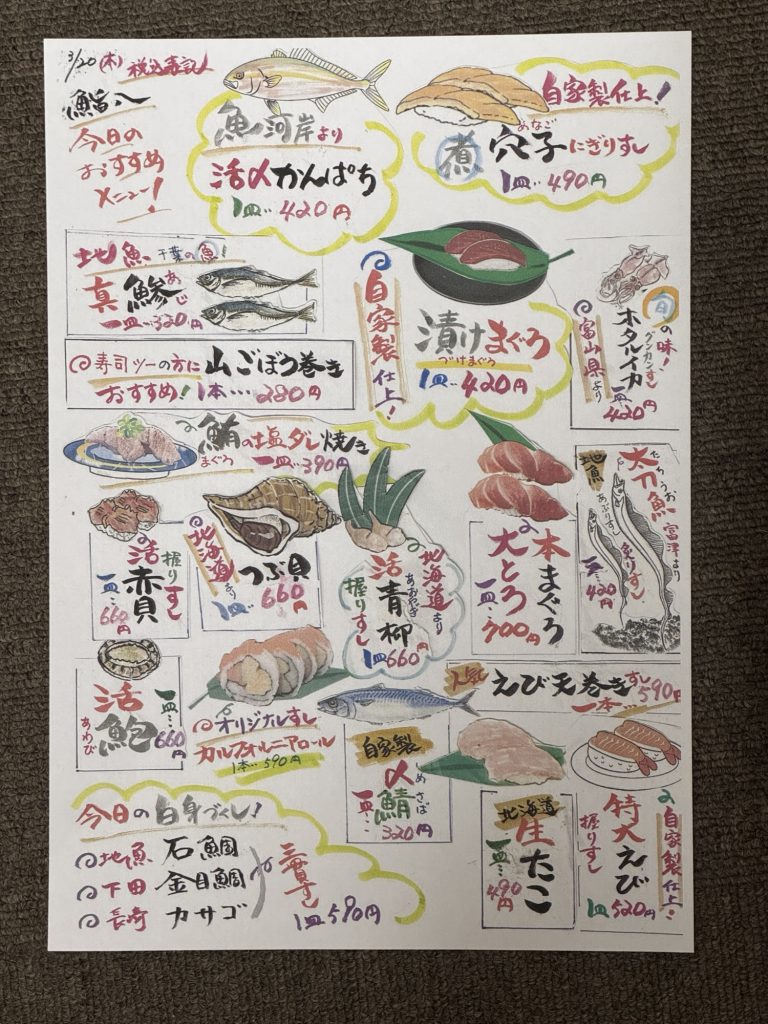 3/20(木) 税込表記
鮨八
今日の
おすすめ
メニュー!
魚河岸より
活〆かんぱち
1皿‥420円
自家製仕上!
あなご
煮穴子にぎりすし
1皿‥490円
地魚 千葉の魚!
真鯵 あじ
一皿…320円
寿司ツーの方に
おすすめ!
山ごぼう巻き
1本…280円
自家製仕上!
漬けまぐろ
づけまぐろ
1皿‥420円
旬の味!
富山県より
ホタルイカ
グンカンすし
一皿…420円
鮪の塩ダレ焼き
まぐろ
一皿…390円
活赤貝
握りすし
一皿…660円
北海道より
つぶ貝
1皿660円
北海道より
活青柳
あおやぎ
握りすし
1皿660円
本まぐろ
大とろ
一皿…700円
地魚
太刀魚
たちうお
富津より
あぶりすし
炙りすし
一皿…420円
活鮑
あわび
一皿…660円
オリジナルすし
カルフォルニアロール
1本…590円
人気
えび天巻きすし
一本…590円
自家製
〆鯖
しめさば
一皿…320円
北海道
生たこ
一皿…490円
特大えび
握りすし
1皿520円
自家製仕上!
今日の白身づくし!
地魚 石鯛
下田 金目鯛
長崎 カサゴ
三貫すし
1皿590円